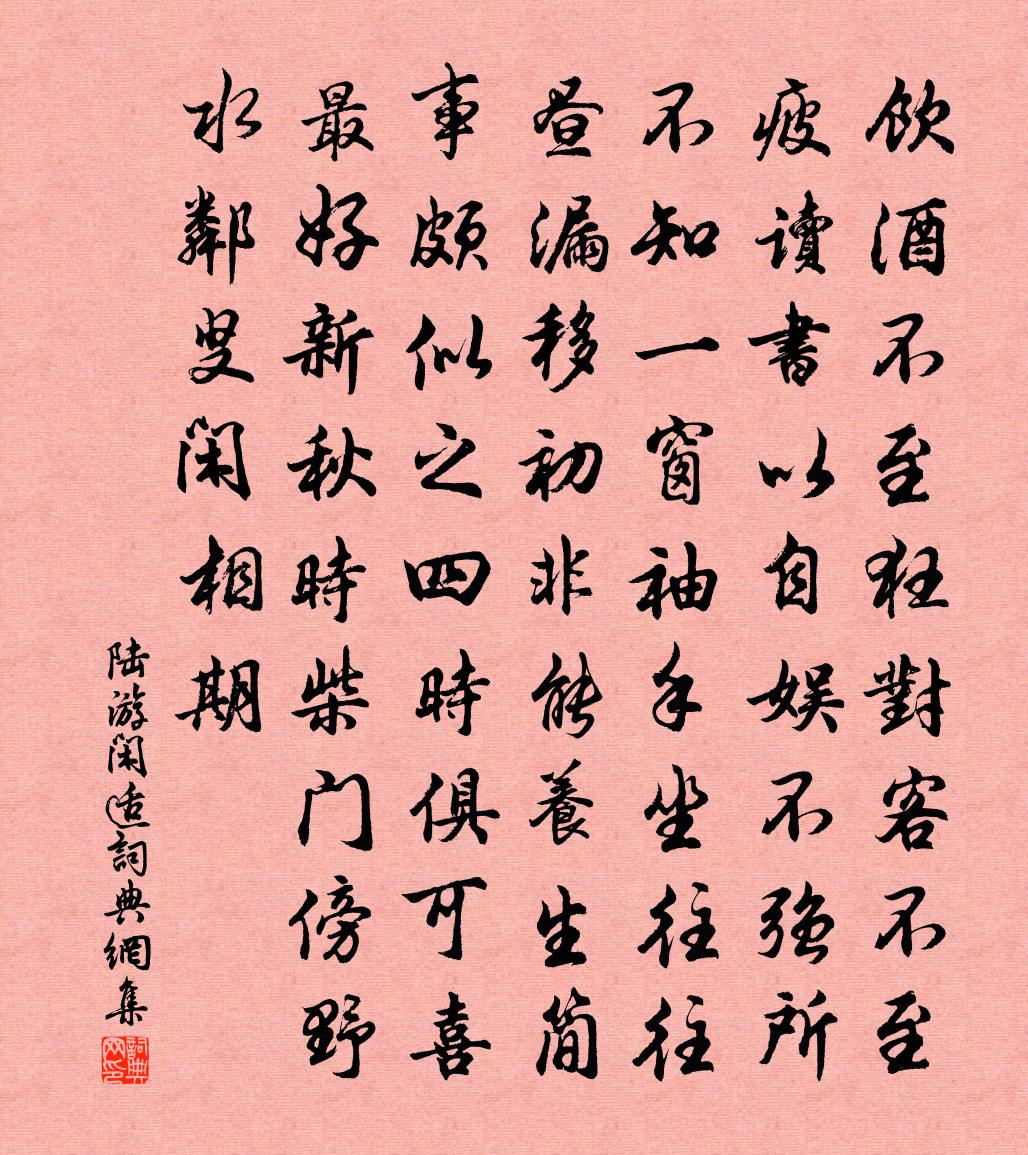 飲酒不至狂對客不至
疲讀書以自娛不強所
不知一窗袖手坐往往
晝漏移初非能養生簡
事頗似之四時俱可喜
最好新秋時柴门傍野
水鄰叟閑相期
陆游闲适詞典網集
詞典网印